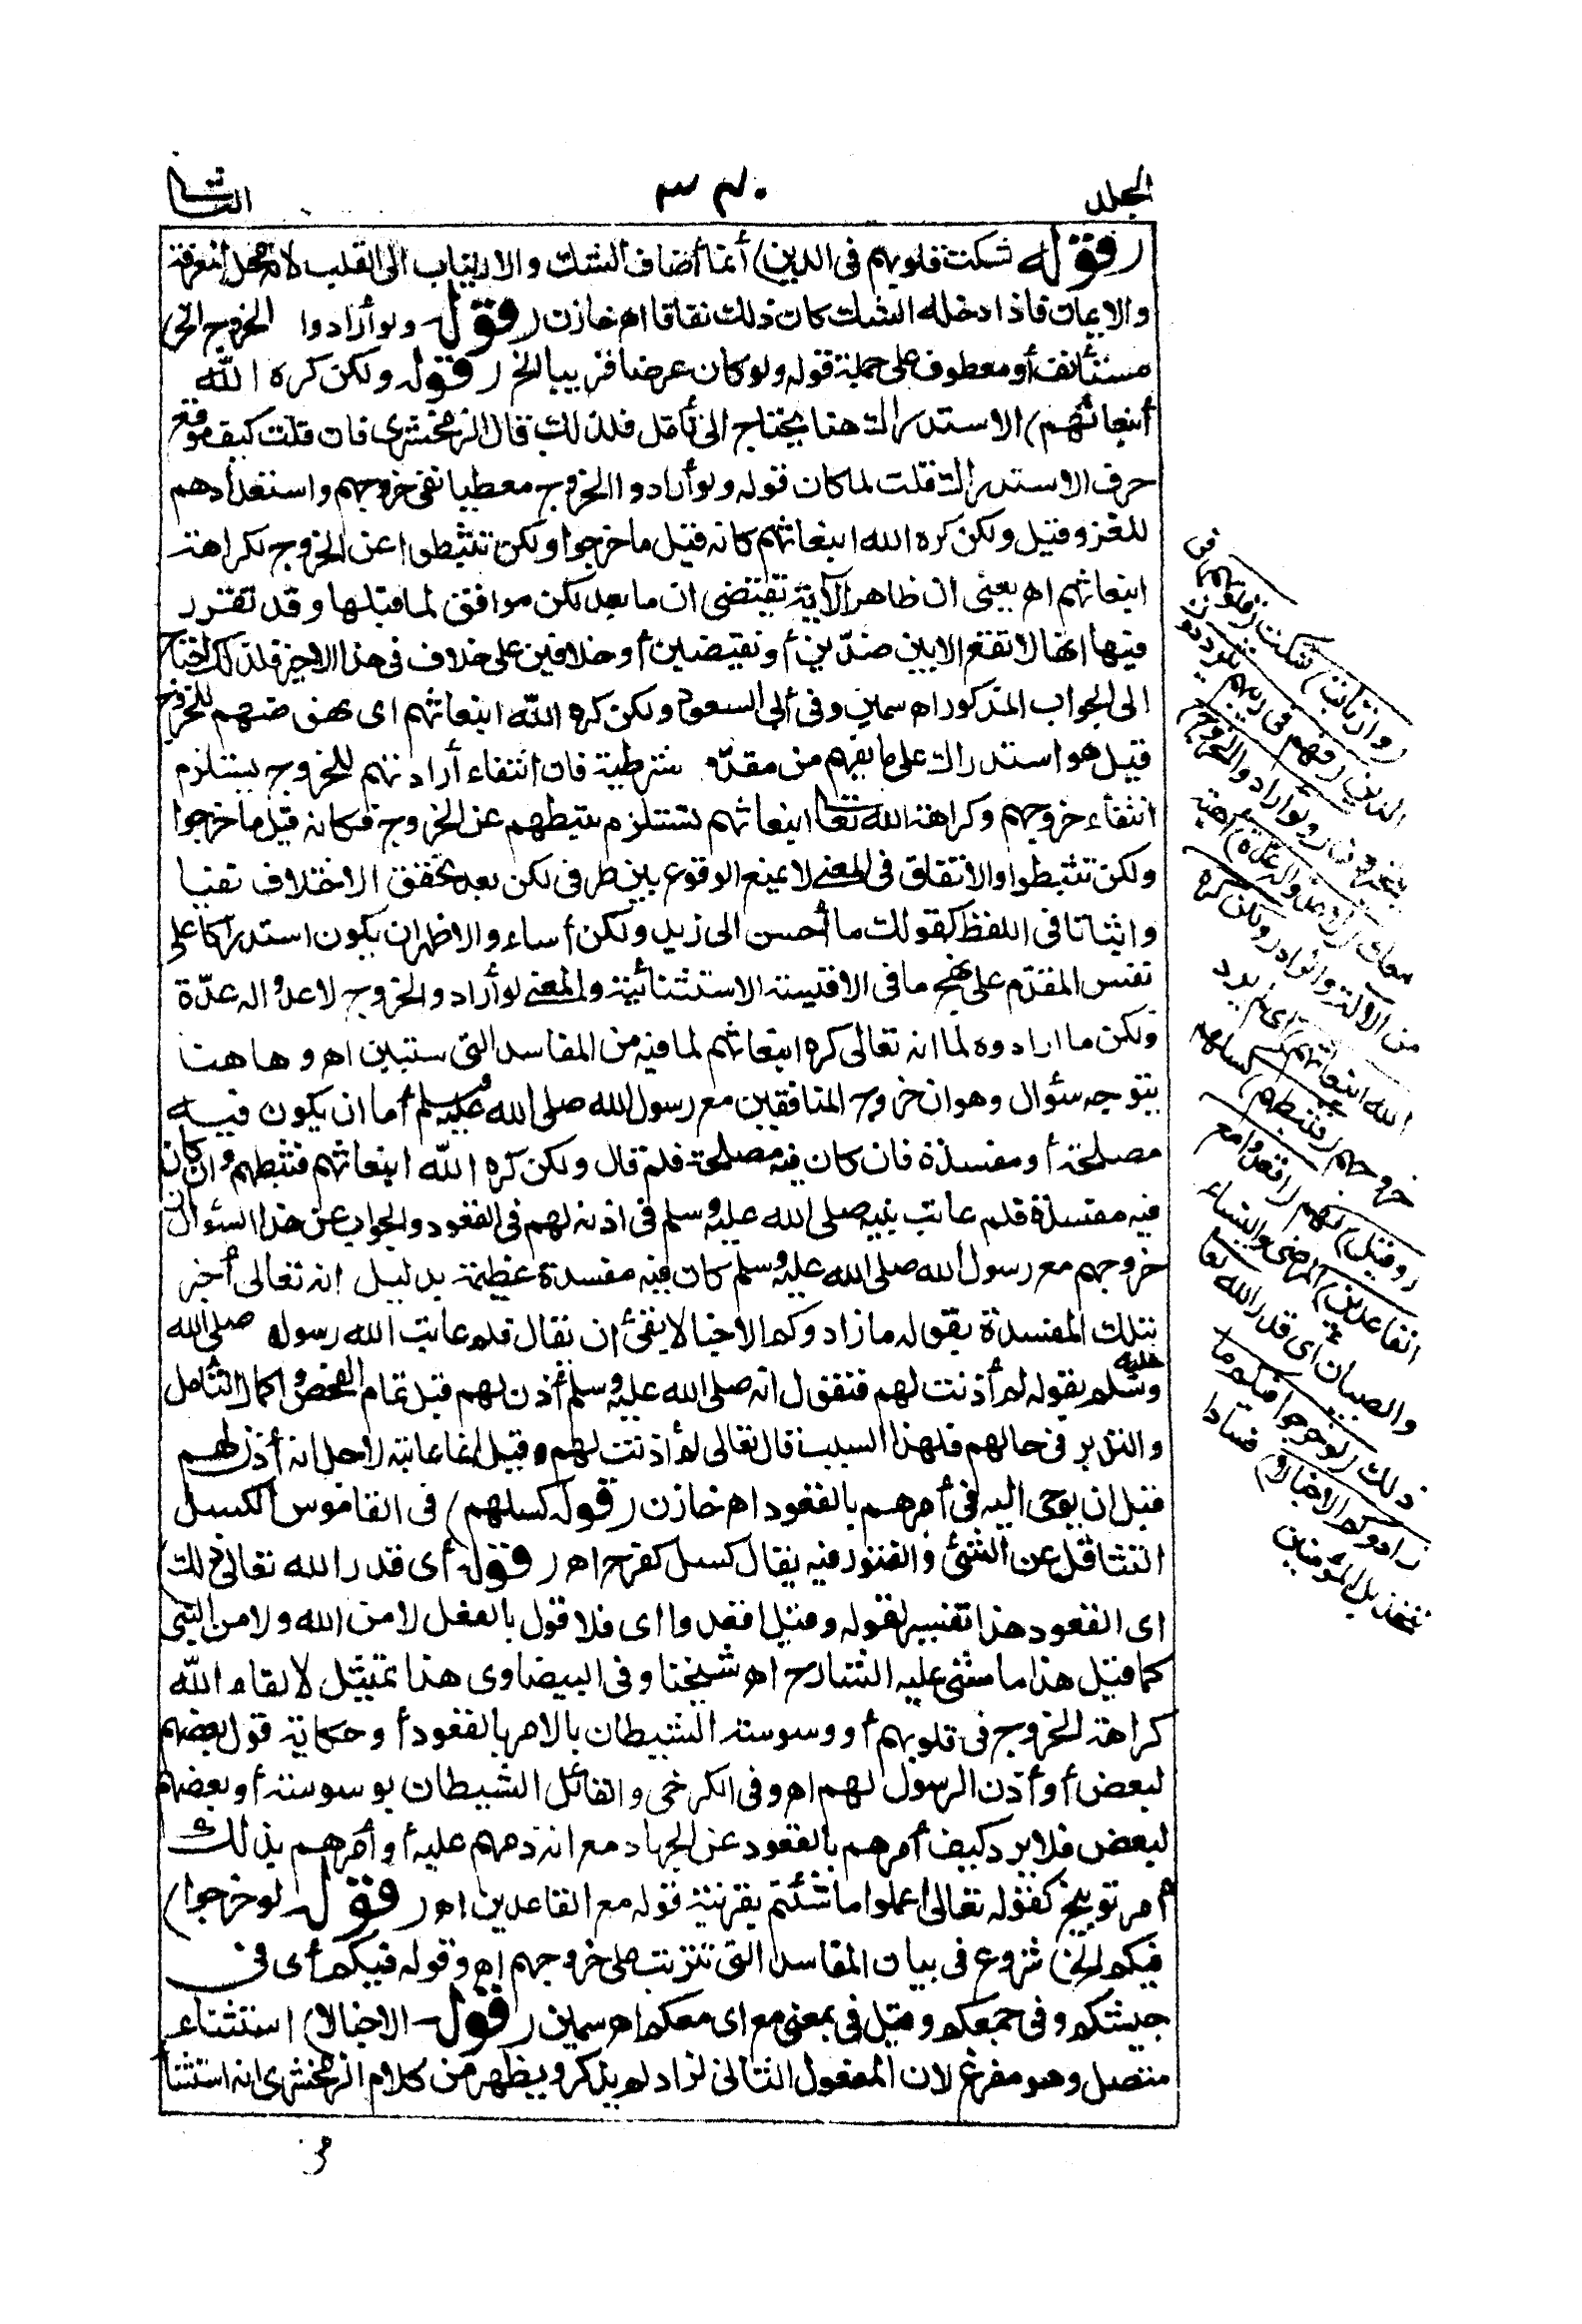 الجلد
٣٤٠
الثانى
(قوله شكت قلوبهم فى الدين) أنما أضاف الشك والارتياب الى القلب لانه محل المعرفة
والايمان فاذا دخله الشك كان ذلك نفاقا اه خازن (قوله ولو أرادوا الخروج الخ)
مستأنف أو معطوف على جملة قوله ولو كان عرضا قريبا الخ (قوله ولكن كره الله
أنبعاثهم) الاستدراك هنا يحتاج الى تأمل فلذلك قال الزمخشرى فان قلت كيف موقع
حرف الاستدراك قلت لما كان قوله ولو أرادوا الخروج معطيا نفى خروجهم واستعدادهم
للغزو وقيل ولكن كره الله انبعاثهم كانه قيل ما خرجوا ولكن تثبطوا عن الخروج لكراهة
انبعاثهم اه يعنى ان ظاهر الآية تقتضى ان ما بعد لكن موافق لما قبلها وقد تقرر
فيها انها لا تقع الا بين ضدّين أو نقيضين أو خلافين على خلاف فى هذا الاخير فلذلك احتاج
الى الجواب المذكور اه سمين وفى أبى السعود ولكن كره الله انبعاثهم اى نهوضهم للخروج
قيل هو استدراك على ما يفهم من مقدّم شرطية فان انتفاء أرادتهم للخروج يستلزم
انتفاء خروجهم وكراهة الله تعالى انبعاثهم تستلزم تثبطهم عن الخروج فكانه قيل ما خرجوا
ولكن تثبطوا والاتفاق فى المعنى لا يمنع الوقوع بين طرفى لكن بعد تحقق الاختلاف نفيا
واثباتا فى اللفظ كقولك ما أحسن الى زيد ولكن أساء والاظهر ان يكون استدراكا على
نفس المقدّم على نهج ما فى الاقيسة الاستثنائية والمعنى لو أرادوا الخروج لاعدوا له عدّة
ولكن ما ارادوه لما انه تعالى كره انبعاثهم لما فيه من المفاسد التى ستبين اه وهاهنا
يتوجه سؤال وهو ان خروج المنافقين مع رسول الله صلى الله عليه وسلم أما ان يكون فيه
مصلحة أو مفسدة فان كان فيه مصلحة فلم قال ولكن كره الله انبعاثهم فثبطهم وان كان
فيه مفسدة فلم عاتب نبيه صلى الله عليه وسلم فى اذنه لهم فى القعود والجواب عن هذا السؤال ان
خروجهم مع رسول الله صلى الله عليه وسلم كان فيه مفسدة عظيمة بدليل انه تعالى أخبر
بتلك المفسدة بقوله ما زادوكم الا خبالا بقى أن يقال فلم عاتب الله رسوله صلى الله
عليه وسلم بقوله لم أذنت لهم فنقول انه صلى الله عليه وسلم أذن لهم قبل تمام الفحص واكمال التأمل
والتدبر فى حالهم فلهذا السبب قال تعالى لم أذنت لهم وقيل انما عاتبه لاجل انه أذن لهم
قبل ان يوحى اليه فى أمرهم بالقعود اه خازن (قوله كسلهم) فى القاموس الكسل
التثاقل عن الشئ والفتور فيه يقال كسل كفرح اه (قوله أى قدر الله تعالى ذلك)
اى القعود هذا تفسير لقوله وقيل اقعدوا اى فلا قول بالفعل لا من الله ولا من النبى
كما قيل هذا ما مشى عليه الشارح اه شيخنا وفى البيضاوى هذا تمثيل لالقاء الله
كراهة الخروج فى قلوبهم أو وسوسة الشيطان بالامر بالقعود أو حكاية قول بعضهم
لبعض أو أذن الرسول لهم اه وفى الكرخى والقائل الشيطان بوسوسته أو بعضهم
لبعض فلا يرد كيف أمرهم بالقعود عن الجهاد مع انه ذمهم عليه أو أمرهم بذلك
أمر توبيخ كقوله تعالى اعملوا ما شئتم بقرينة قوله مع القاعدين اه (قوله لو خرجوا
فيكم الخ) شروع فى بيان المفاسد التى تترتب على خروجهم اه وقوله فيكم أى فى
جيشكم وفى جمعكم وقيل فى بمعنى مع اى معكم اه سمين (قوله الا خبالا) استثناء
متصل وهو مفرغ لان المفعول الثانى لزاد لم يذكر ويظهر من كلام الزمخشرى انه استثناء
(وارتابت) شكت (قلوبهم) فى
الدين (فهم فى ريبهم يترددون)
يتحيرون (ولو أرادوا الخروج)
معك (لاعدوا له عدّة) اهبة
من الآلة والزاد (ولكن كره
الله انبعاثهم) أى لم يرد
خروجهم (فثبطهم) كسلهم
(وقيل) لهم (اقعدوا مع
القاعدين) المرضى والنساء
والصبيان أى قدر الله تعالى
ذلك (لو خرجوا فيكم ما
زادوكم الا خبالا) فسادا
بتخذيل المؤمنين